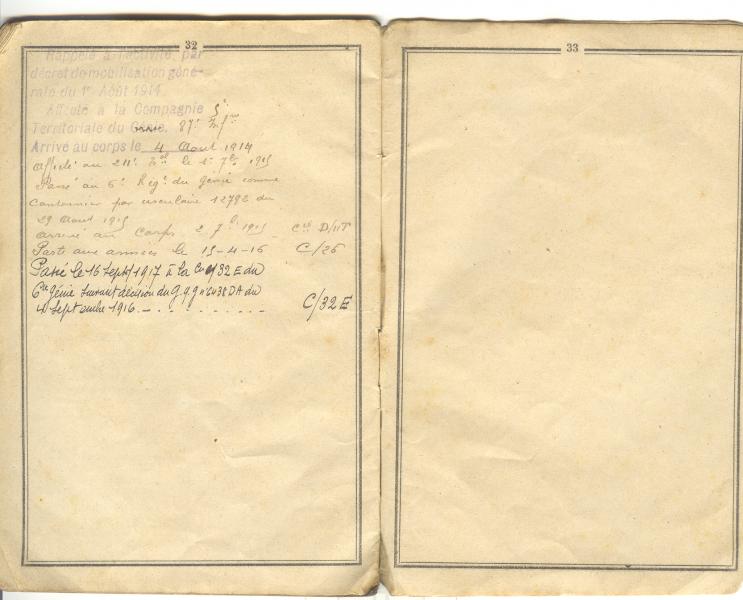 32
Rappelé à l'activité, par
décret de mobilisation géné-
rale du 1er Août 1914.
Affecté à la Compagnie
Territoriale du Génie. 87e
Arrivé au corps le 4 Aout 1914
Affecté au 211e le 1er 7bre 1915
Passé au 6e Régt du génie comme
Cantonnier par circulaire 12792 du
29 Aout 1915
arrivé au Corps 2 7b 1915 Cie D/11T
Parti aux armées le 15-4-16 C/26
Passé le 16 Sept 1917 à la Cie 32 E du
6e Génie Suivant décision du G.Q.G n° 6438 DA du
4 Septembre 1916. - . . . . . . . . . C/32 E
33